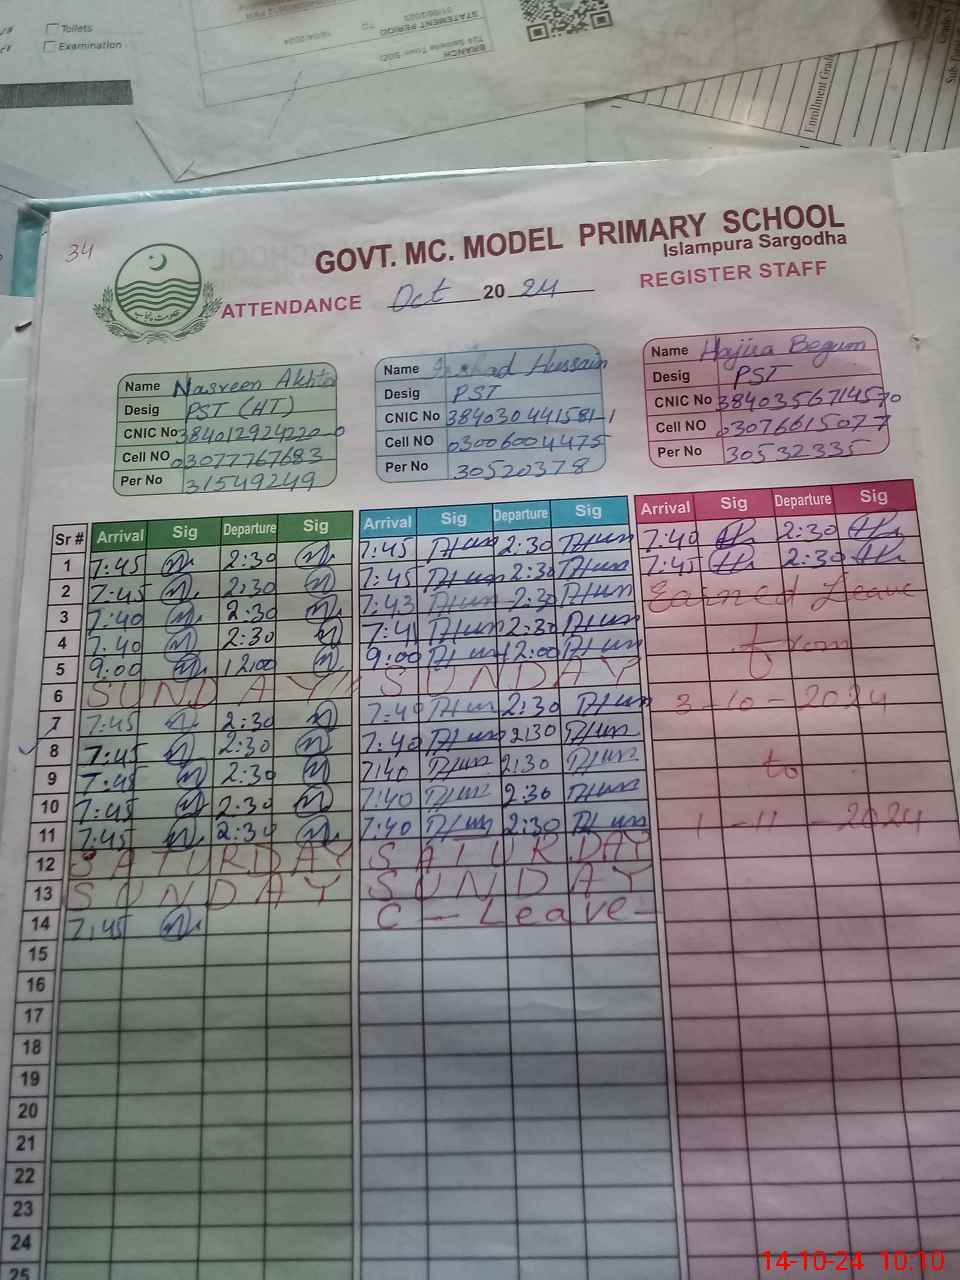 Toilets
Examination
STATEMENT PERIOD
01/06/2023 TO 16/04/2024
BRANCH
Enrollment
34
GOVT. MC. MODEL PRIMARY SCHOOL
Islampura Sargodha
ATTENDANCE Oct 2024 REGISTER STAFF
Name Nasreen Akhtar
Desig PST (HT)
CNIC No 3840129242200
Cell NO 03077767683
Per No 31549249
Name Irshad Hussain
Desig PST
CNIC No 384030441581-1
Cell NO 03006004475
Per No 30520378
Name Hajira Begum
Desig PST
CNIC No 3840356714570
Cell NO 03076615077
Per No 30532335
Sr # Arrival Sig Departure Sig Arrival Sig Departure Sig Arrival Sig Departure Sig
1 7:45 2:30 7:45 2:30 7:40 2:30
2 7:45 2:30 7:45 2:30 7:45 2:30
3 7:40 2:30 7:43 2:30 Earned Leave
4 7:40 2:30 7:41 2:30
5 9:00 12:00 9:00 12:00 from
6 SUNDAY SUNDAY
7 7:45 2:30 7:40 2:30 3-10-2024
8 7:45 2:30 7:40 2:30
9 7:45 2:30 7:40 2:30 to
10 7:45 2:30 7:40 2:30
11 7:45 2:30 7:40 2:30 1-11-2024
12 SATURDAY SATURDAY
13 SUNDAY SUNDAY
14 7:45 C-Leave-
15
16
17
18
19
20
21
22
23
24
25
14-10-24 10:10